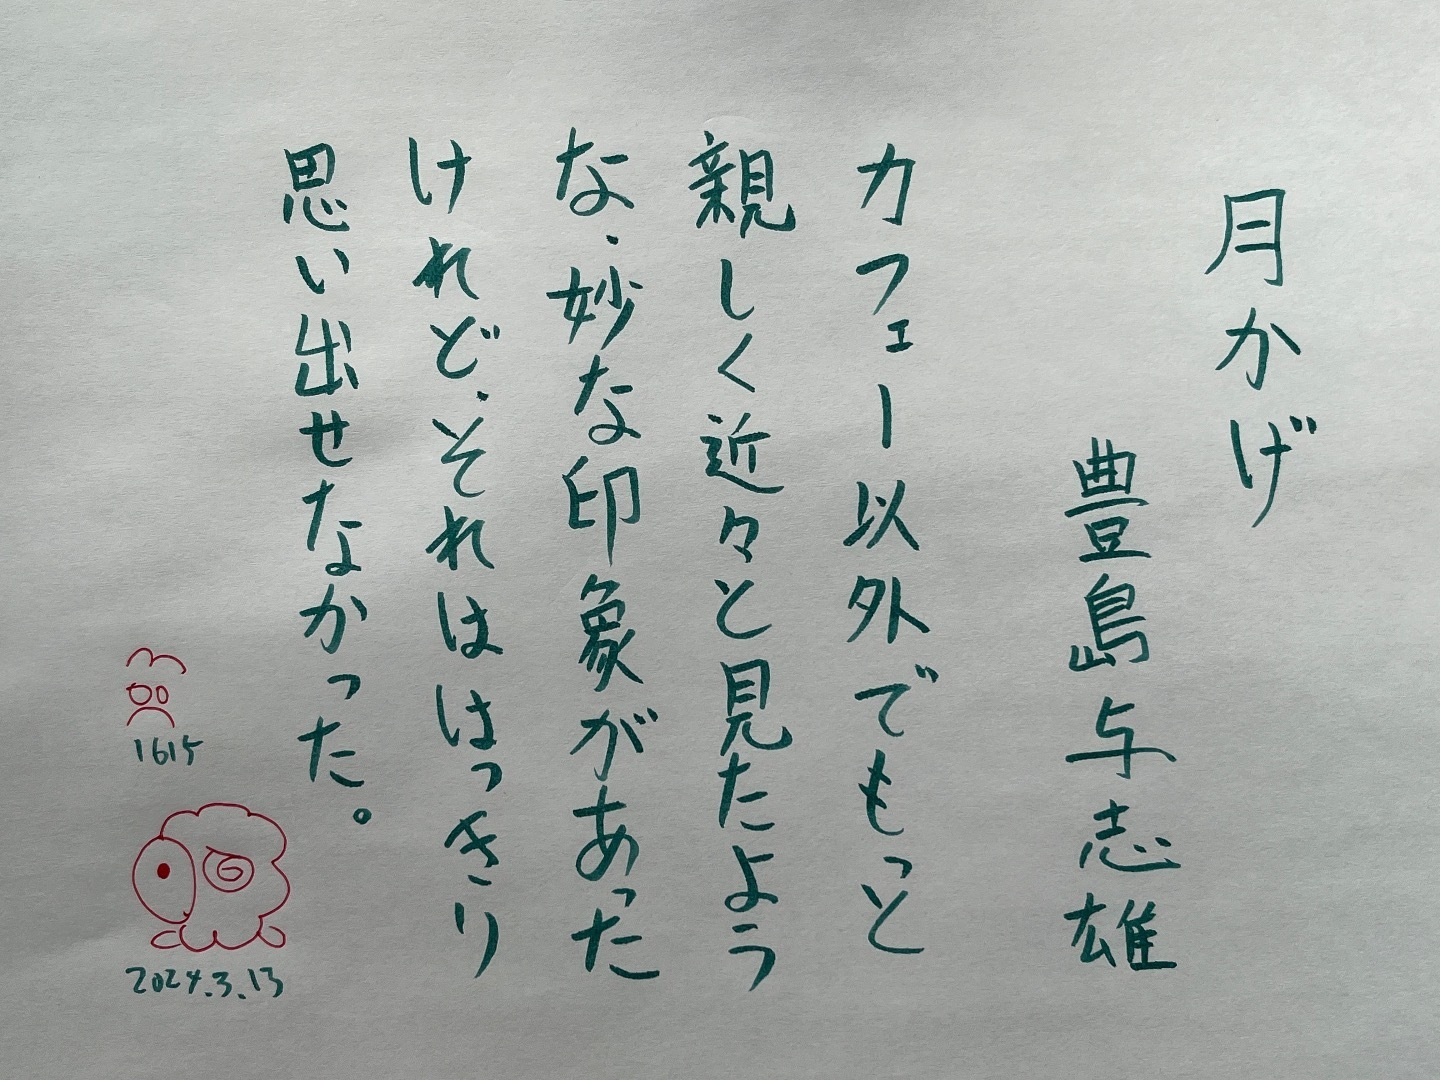 月かげ
豊島与志雄
カフェー以外でもっと
親しく近々と見たよう
な、妙な印象があった
けれど、それははっきり
思い出せなかった。
1615
2024.3.13